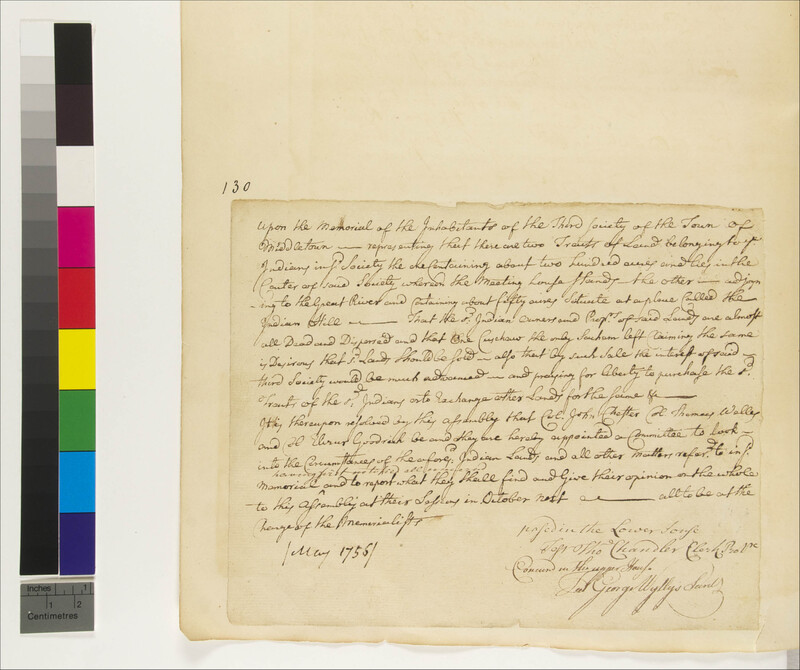 130
Upon the Memorial of the Inhabitants of the Third Society of the Town of
Middletown — representing that there are two Tracts of Land belonging to ye
Indians in sd Society the one Containing about two hundred acres and lies in the
Center of said Society wherein the Meeting house stands — the other — adjoyn
ing to the Great River and Containing about fifty acres Situate at a place Called the
Indian Hill — That the sd Indian owners and Proprs of said Lands are almost
all Dead and Dispersed and that One Cuschaw the only Sachem left Claiming the same
is Desirous that sd Lands Should be Sold — also that by such Sale the interest of said
third Society would be much advanced — and praying for liberty to purchase the sd
Tracts of the sd Indians or to Exchange other Lands for the same &c —
It is thereupon resolved by this assembly that Col. John Chester Thomas Welles
and Elizur Goodrich be and they are hereby appointed a Committee to look
into the Circumstances of the aforesd Indian Lands and all other Matters referd to in sd
having first notified all
Memorial and to report what they shall find and Give their opinion on the whole
to this Assembly at their Sessions in October next — all to be at the
Charge of the Memorialists
[May 1756]
passed in the Lower House
Test Thos Chandler Clerk
Concurd in the upper House
Test George Wyllys Secrety
Inches 1
1 2
Centimetres